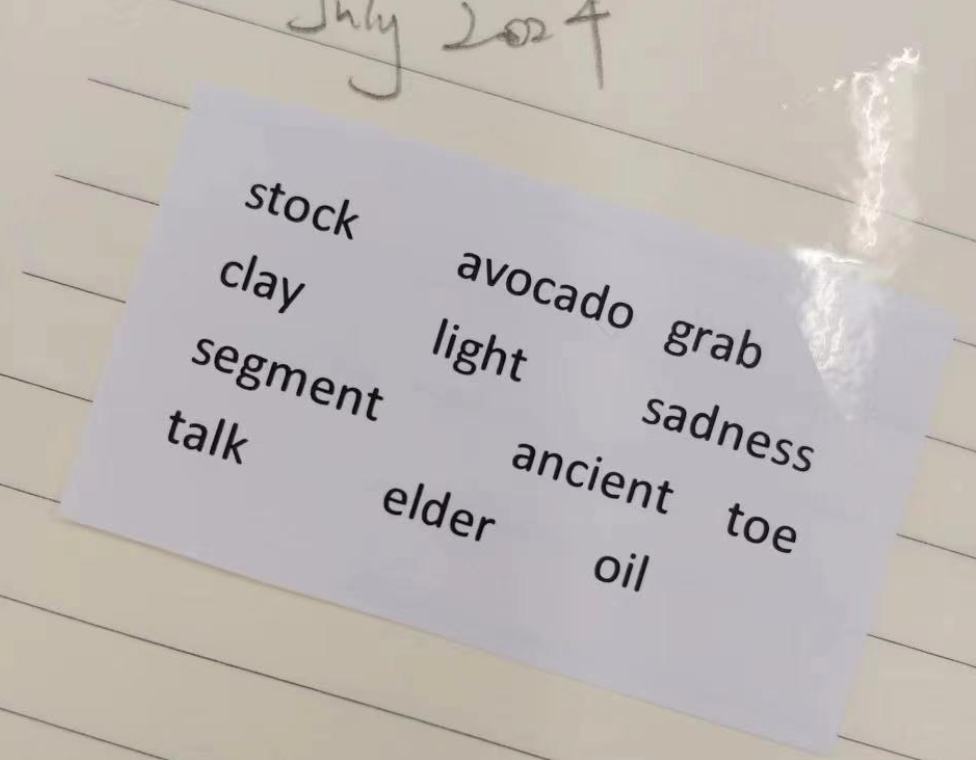 July 2024
stock avocado grab
clay light sadness
segment ancient toe
talk elder oil